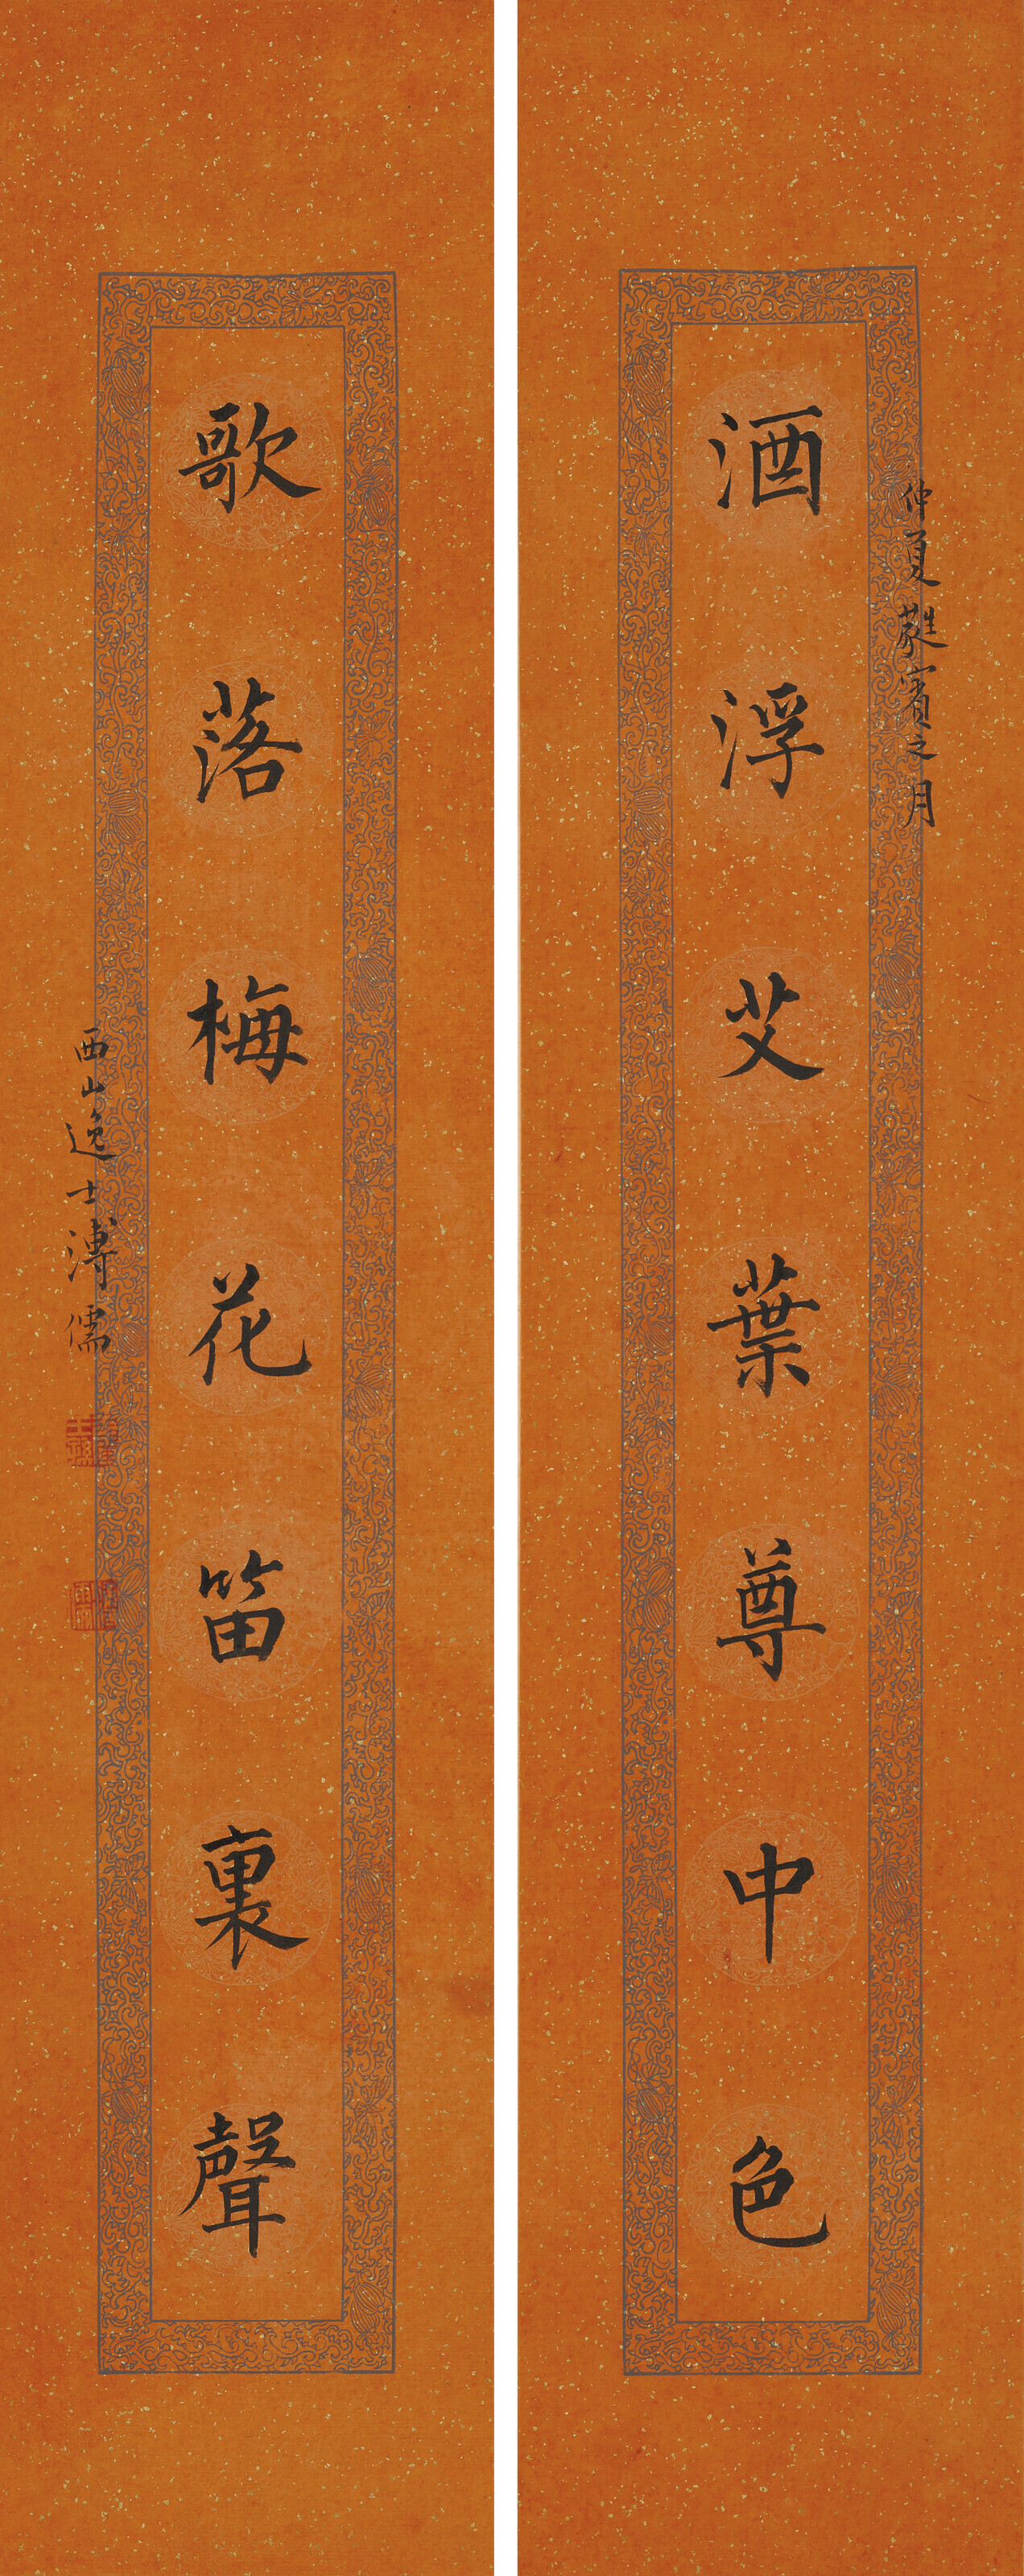 仲夏蕤賓之月
酒浮艾葉尊中色
歌落梅花笛裏聲
西山逸士溥儒